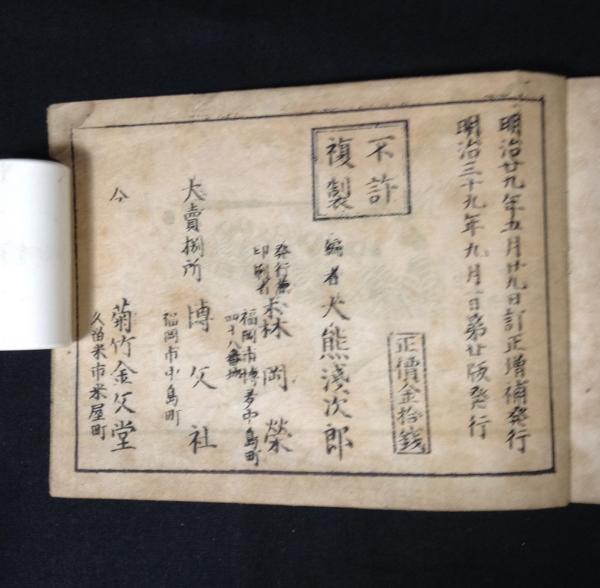 明治廿九年五月廿九日訂正増補発行
明治三十九年九月一日第廿版発行
正價金拾錢
不許
複製
編者 大熊淺次郎
発行兼
印刷者 森岡榮
福岡市博多中島町
四十八番地
大賣捌所 博文社
福岡市中島町
仝 菊竹金文堂
久留米市米屋町